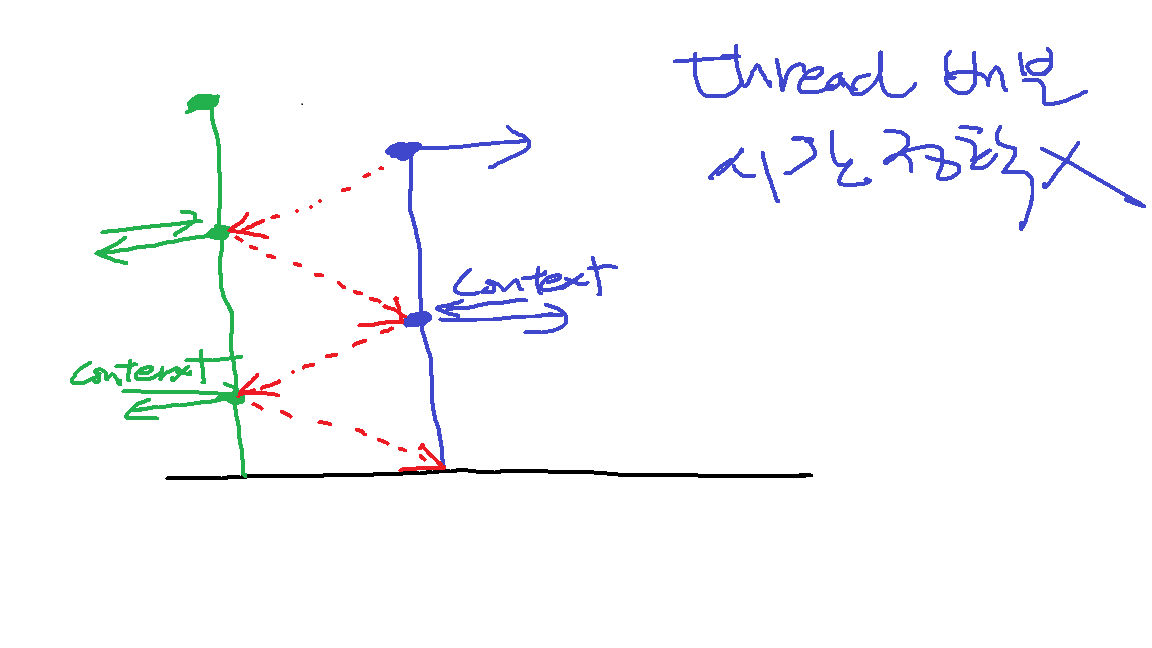 thread 빈번
시간 정확 X
context
conterxt